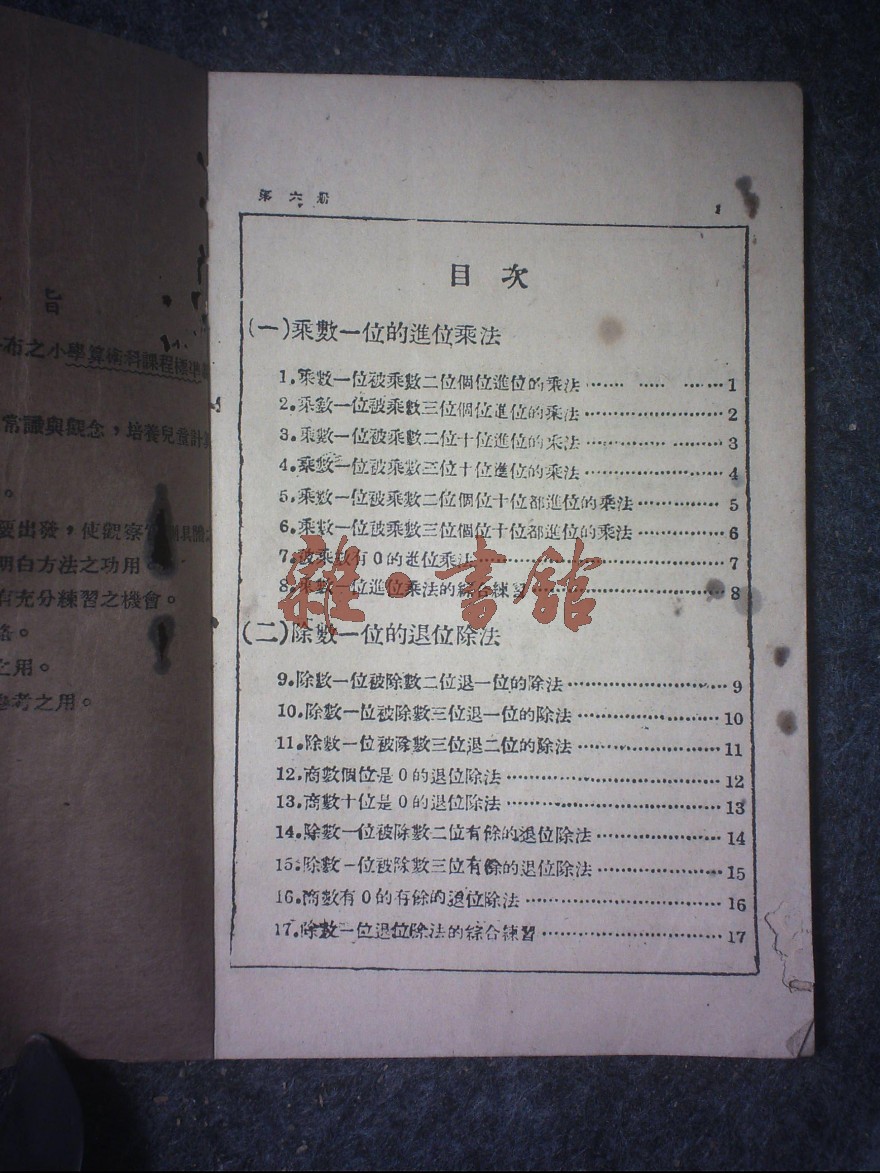 旨
布之小學算術科課程標準
常識與觀念,培養兒童計算
。
要出發,使觀察
明白方法之功用。
有充分練習之機會。
之用。
參考之用。
第六冊
1
目次
(一)乘數一位的進位乘法
1.乘數一位被乘數二位個位進位的乘法……………1
2.乘數一位被乘數三位個位進位的乘法……………2
3.乘數一位被乘數二位十位進位的乘法……………3
4.乘數一位被乘數三位十位進位的乘法……………4
5.乘數一位被乘數二位個位十位都進位的乘法…………5
6.乘數一位被乘數三位個位十位都進位的乘法…………6
7.被乘數有0的進位乘法……………………7
8.乘數一位進位乘法的綜合練習…………………8
(二)除數一位的退位除法
9.除數一位被除數二位退一位的除法………………9
10.除數一位被除數三位退一位的除法………………10
11.除數一位被除數三位退二位的除法………………11
12.商數個位是0的退位除法……………………12
13.商數十位是0的退位除法……………………13
14.除數一位被除數二位有餘的退位除法……………14
15.除數一位被除數三位有餘的退位除法……………15
16.商數有0的有餘的退位除法…………………16
17.除數一位退位除法的綜合練習…………………17
雜·書館